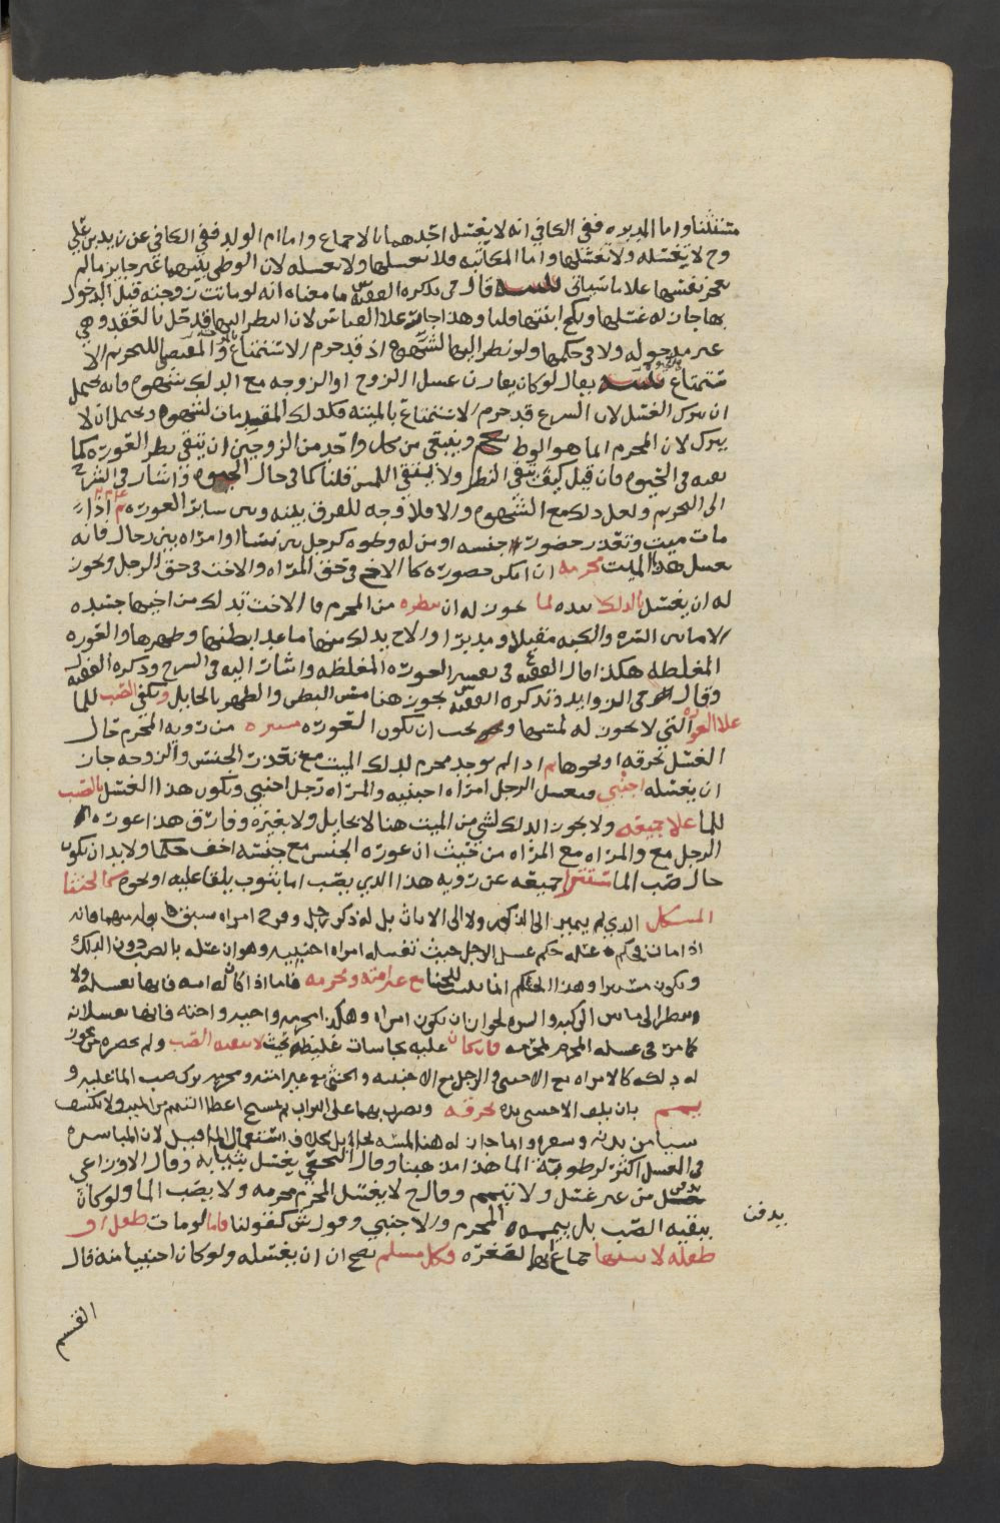 متنقلنا واما المدبره ففي الكافي انه لا يغتسل احدهما بالاجماع واما ام الولد ففي الكافي عن زيد بن علي
وح لا يغسله ولا تغسلها واما المكاتبه فلا تغسلها ولا تغسله لان الوطي بينهما غير جايز مالم
تعجز نفسها علا ما سياتي قال في تذكره الفقيه ما معناه انه لو ماتت زوجته قبل الدخول
بها جاز له غسلها ونكح ابنتها قلنا وهذا علا القياس لان النظر اليها قد حل بالعقد وهي
غير مدخوله ولا في حكمها ولو نظر اليها لشهوه اذ قد حرم الاستمتاع المقتضي للتحريم الا
ستمتاع يقال لو كان يقارن غسل الزوج او الزوجه مع الدلك شهوه فانه يحتمل
ان يترك الغسل لان الشرع قد حرم الاستمتاع بالميته فكذلك المقدمات لشهوه ويحتمل ان لا
يترك لان المحرم انما هو الوطء وينبغي من كل واحد من الزوجين ان يتقي نظر العوره كما
في الحيوه فان قيل كيف يتقي النظر ولا يتقي اللمس قلنا كما في حال الحيوه واشار في الشرح
الى التحريم ولعل ذلك مع الشهوه والا فلا وجه للفرق بينه وبين سائر العوره ثم اذا
مات ميت وتعذر حضور جنسه او من له وطوه كرجل بين نسا او امراه بين رجال فانه
يغسل هذا الميت محرمه ان امكن حضوره كالاخ في حق المراه والاخت في حق الرجل ويجوز
له ان يغسل بالدلك بيده لما يجوز له ان ينظره من المحرم فالاخت تدلك من اخيها جسده
الا ما بين السره والركبه مقبلا ومدبرا والاخ يدلك منها ما عدا بطنها وظهرها والعوره
المغلظه هكذا قال الفقيه في تفسير العوره المغلظه واشار اليه في الشرح وذكره الفقيه
وقال في الزوايد وتذكره الفقيه يجوز هنا مس البطن والظهر بالحايل ويكفي الصب للما
علا العوره التي لا يجوز له لمسها ويجب ان تكون العوره مستره من رويه المحرم حال
الغسل بخرقه او نحوها ثم اذا لم يوجد محرم لذلك الميت مع تعذر الجنس والزوجه جاز
ان يغسله اجنبي فيغسل الرجل امراه اجنبيه والمراه رجل اجنبي ويكون هذا الغسل بالصب
للما علا جميعه ولا يجوز الدلك لشي من الميت هنا لا بحايل ولا بغيره وفارق هذا عوره
الرجل مع والمراه مع المراه من حيث ان عوره الجنس مع جنسه اخف حكما ولا بد ان يكون
حال صب الما مستترا جميعه عن رويه هذا الذي يصب اما بثوب يلقا عليه او نحوه كالخنثا
المشكل الذي لم يميز الى الذكور ولا الى الاناث بل له ذكر رجل وفرج امراه سبق بوله منهما فانه
اذا مات في حكم غسله حكم غسل الرجل حيث تغسله امراه اجنبيه وهو ان غسله بالصب دون الدلك
ويكون مستترا وهذا الحكم انما يثبت للخنثا مع غير امته ومحرمه فاما اذا كان له امه فانها تغسله ولا
تنظر الى ما بين الركبه والسره لجواز ان يكون امراه وهكذا محرمه واحيه واخته فانها تغسلانه
كما مر في غسله المحرم لمحرمه فان كان عليه نجاسات غليظه بحيث لا ينقيه الصب ولم يحضره من يجوز
له دلكه كالامراه مع الاجنبي والرجل مع الاجنبيه والخنثى مع غير امته ومحرمه ترك صب الما عليه و
ييمم بان يلف الاجنبي يده بخرقه ويضرب بهما على التراب ثم يمسح اعضا التيمم من الميت ولا يكشف
شيا من بدنه وشعره وانما جاز له هنا المسه بحايل بخلاف استعمال الما قبل لان المباشره
في الغسل اكثر لرطوبه الما هذا مذهبنا وقال النخعي يغسل بثيابه وقال الاوزاعي
يدفن من غير غسل ولا تيمم وقال ح لا يغسل المحرم محرمه ولا يصب الما ولو كان
ينقيه الصب بل ييممه المحرم والاجنبي وقول ش كقولنا فاما لو مات طفل او
طفله لا يشتها جماع لصغره فكل مسلم يصح ان يغسله ولو كان اجنبيا منه قال
يدفن
القسم